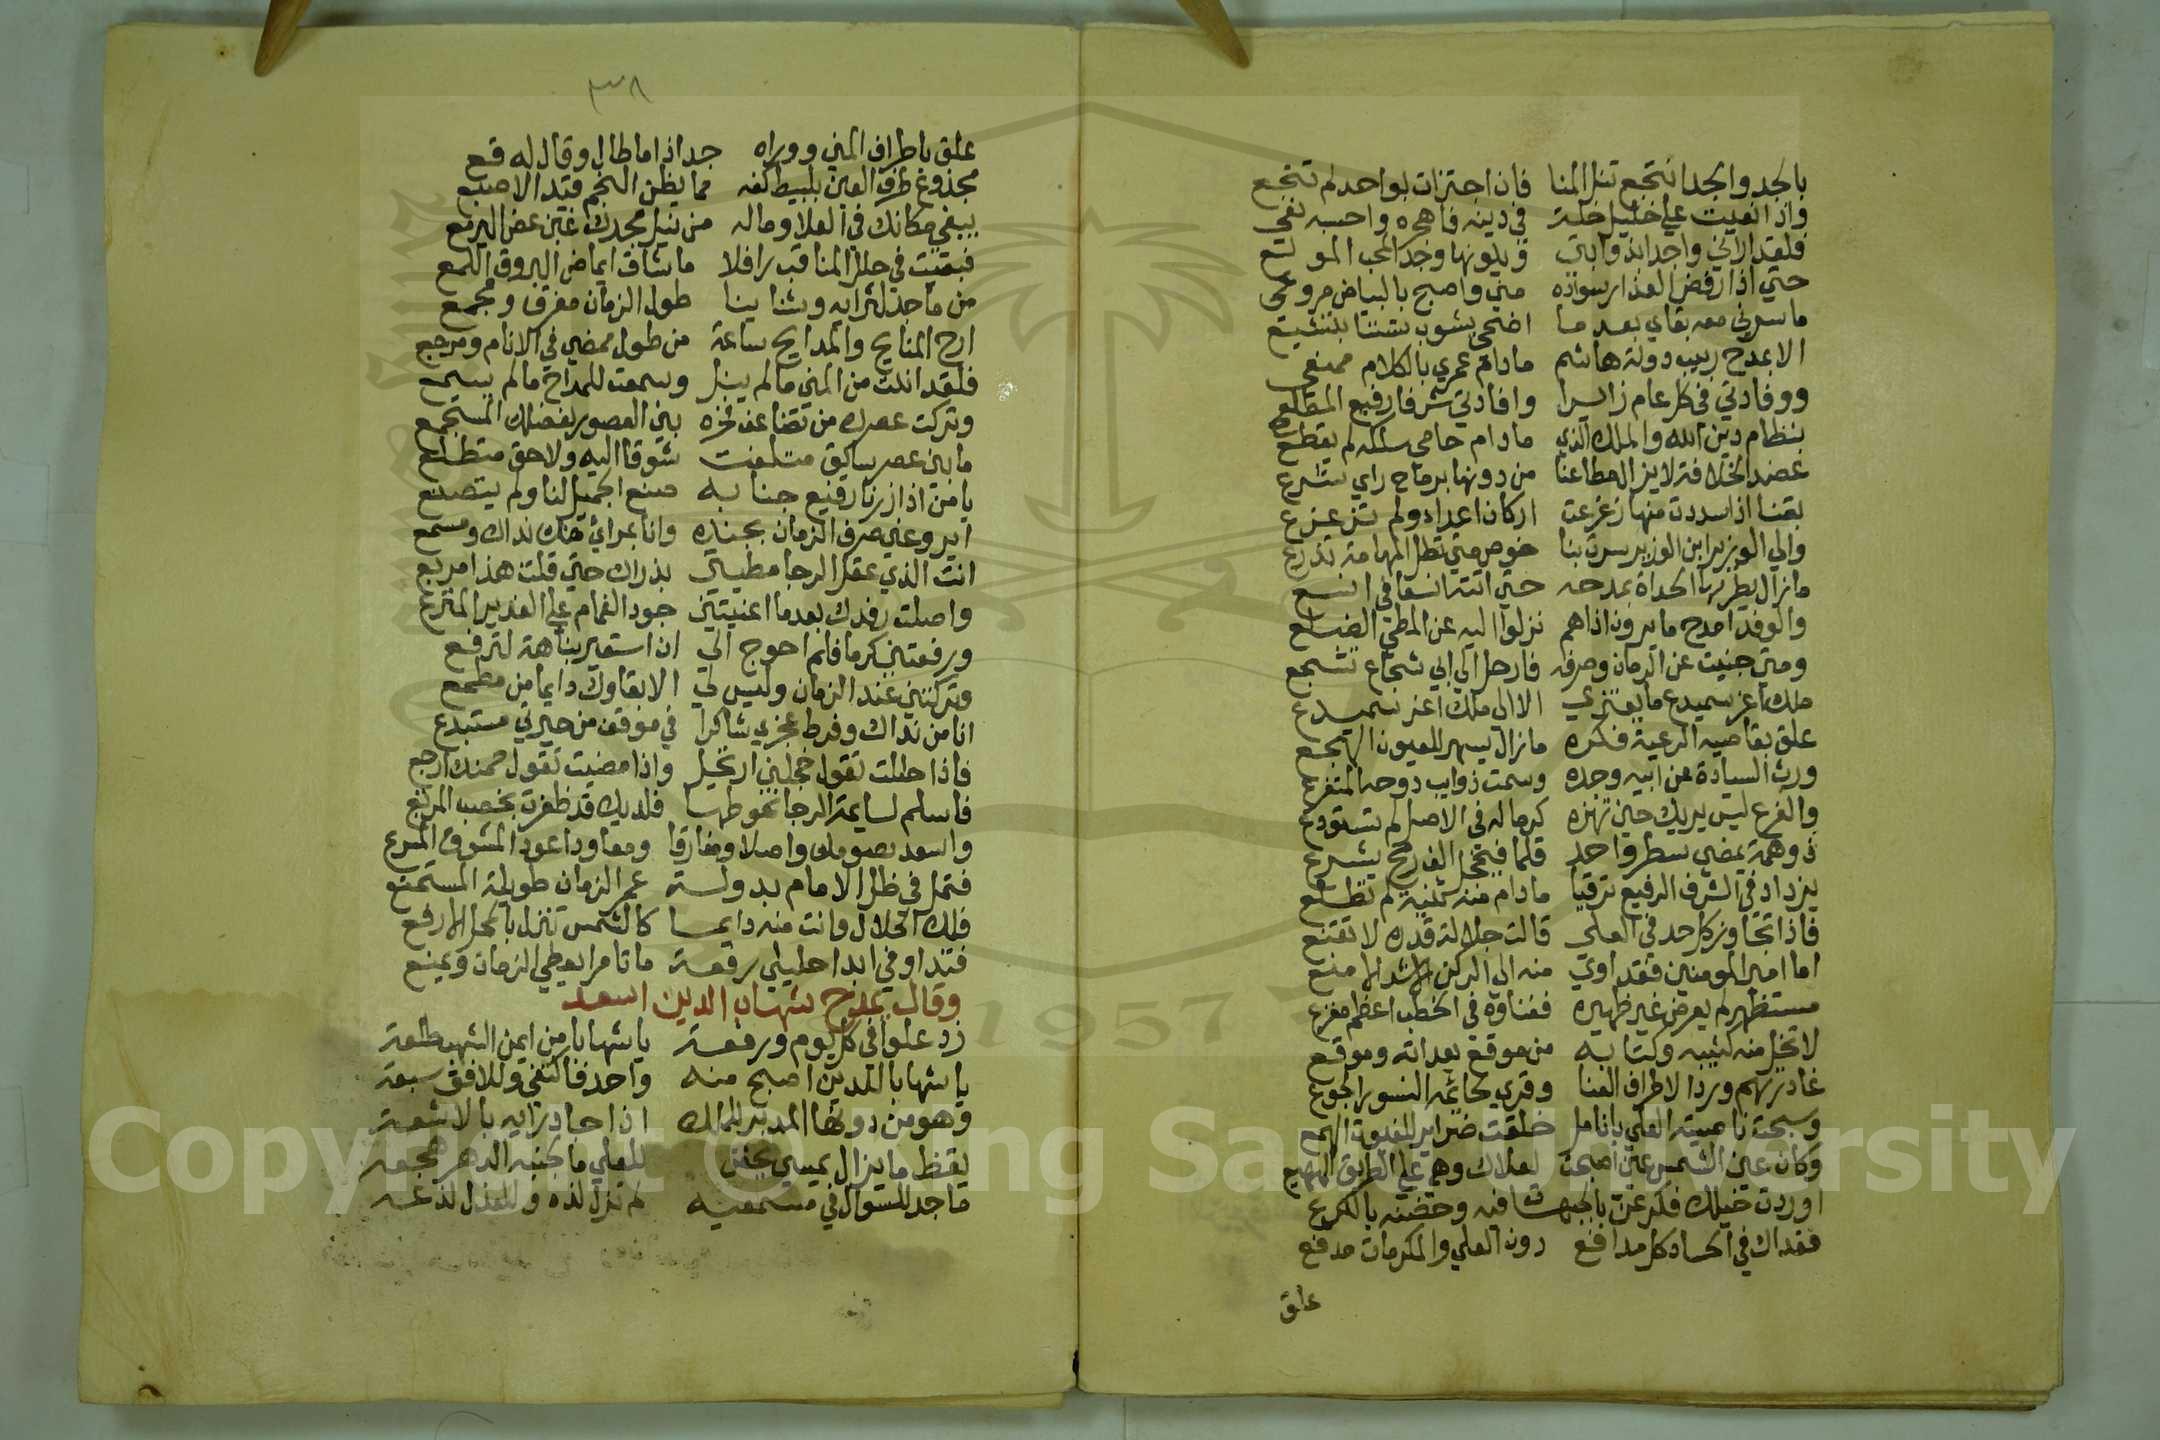 بالجد والجد انتجع تنل المنا فان اجتزات بواحد لم تنجع
واذا لقيت علي خليل خلة في دينه فاهجره واحسبه نعي
فلقد اراني واجدا
حتي اذا رفض العذار سواده مني واصبح بالبياض مروعي
ما سرني معه بقاي بعد ما اضحي يشوب
الا بمدح ربيب دولة هاشم مادام عمري بالكلام ممتعي
ووفادتي في كل عام زايرا وافادتي شرفا رفيع المطلع
بنظام دين الله والملك الذي مادام حامي سلكه لم يقطع
عضد الخلافة لا يزال مطاعنا من دونها برماح راي شرع
بقنا اذا سددت منها زعزعت اركان اعداد ولم تتزعزع
والي الوزير ابن الوزير سرت بنا خوص متي تطل المهامة تذرع
مازال يطربها الحداة بمدحه حتي اتته انسعا في انسع
والوفد امدح ما يرون اذا هم نزلوا اليه عن المطي الضلع
ومتي جنيت عن الزمان وصرفه فارحل الي ابي شجاع تشجع
ملك اغر سميدع ما يعتزي الا الي ملك اغر سميدع
علق بقاصيه الرعية فكره مازال يسهر للعيون الهجع
ورث السيادة عن ابيه وجده وسمت ذوايب دوحه المتفرع
والفرع ليس يريك حين تهزه كرما له في الاصل لم يستودع
ذو همة يمضي بسطر واحد قلما فيخجل الف رمح يشرع
يزداد في الشرف الرفيع ترقيا مادام منه ثنية لم تطلع
فاذا تجاوز كل حد في العلي قالت جلالة قدره لا تقنع
اما امير المومنين فقد اوي منه الي الركن الاشد الامنع
مستظهر لم يعرض غير ظهيره فغناوه في الخطب اعظم مفزع
لا تخل منه كتيبه وكتابه من موقع بعداته وموقع
غادرتهم وردا لاطراف القنا وقري لحائمه النسور الجوع
وسبحت ناصية العلي بانامل خلقت ضراير للغيوث الهمع
وكان عين الشمس عين اصبحت لعلاك وهي علي الطريق المهيع
اوردت خيلك فكرعن بالجبهات فيه وحضنه بالاكرع
فغداك في الحساد كل مدافع دون العلي والمكرمات مدفع
علق
٣٨
علق باطراف المني ووراه جد اذا ما طال وقال له قع
مجذوع ظرف العين بلبيط كفه مما يظن النجم قيد الاصبع
يبغي مكانك في العلا وماله من نيل مجدك غير عض اليرمع
فبقيت في حلل المناقب رافلا ما شاق ايماض البروق اللمع
من ماجد لثرايه وثنا ينا طول الزمان مفرق ومجمع
ارح المنايح والمدايح ساعة من طول ممضي في الانام ومرجع
فلقد انلت من المني ما لم ينل وسمعت للمداح ما لم يسمع
وتركت عصرك من تضاعف فخره بين العصور لفضلك المستجمع
ما بين عصر سابق متلفت شوقا اليه ولاحق متطلع
يا من اذا زرنا رفيع جنابه صنع الجميل لنا ولم يتصنع
ايروعني صرف الزمان بجنده وانا بمرائي من نداك ومسمع
انت الذي عقل الرجا مطيتي بذراك حتي قلت هذا مربع
واصلت رفدك بعدما اغنيتني جود الغمام علي الغدير المترع
ورفعتني كرما فلم احوج الي ان استعير بناهة لترفع
وتركتني عند الزمان وليس لي الا بقاوك دايما من مطمع
انا من نداك وفرط عجزي شاكرا في موقف من حيرتي مستبدع
فاذا حللت تقول خجلتي ارتحل واذا مضيت تقول حمنك ارجع
فاسلم لسايمة الرجا تحوطها فلديك قد ظفرت بخصب المرتع
واسعد بصوملك واصلا ومفارقا ومعاودا عود المشوق المسرع
فتمل في ظل الامام بدولة عمر الزمان طويلة المستمتع
فلك الجلال وانت منه دايما كالشمس تنزل بالمحل الارفع
فتداو في ابدا حليلي رفعة ما تامرا يعطي الزمان ويمنع
وقال يمدح شهاب الدين اسعد
زد علوا في كل يوم ورفعة يا شهابا من ايمن الشهب طلعة
يا شهابا بالدين اصبح منه واحد فاكتفي وللافق سبعة
وهو من دونها المدبر للملك اذا جاد رايه بالاشعة
يقظ ما يزال يمسي بجفن للعلي ما بجنبه الدهر هجعه
ماجد للسوال في مسمعيه لم تزل لذه وللعذل لذعه
Copyright © King Saud University
1957